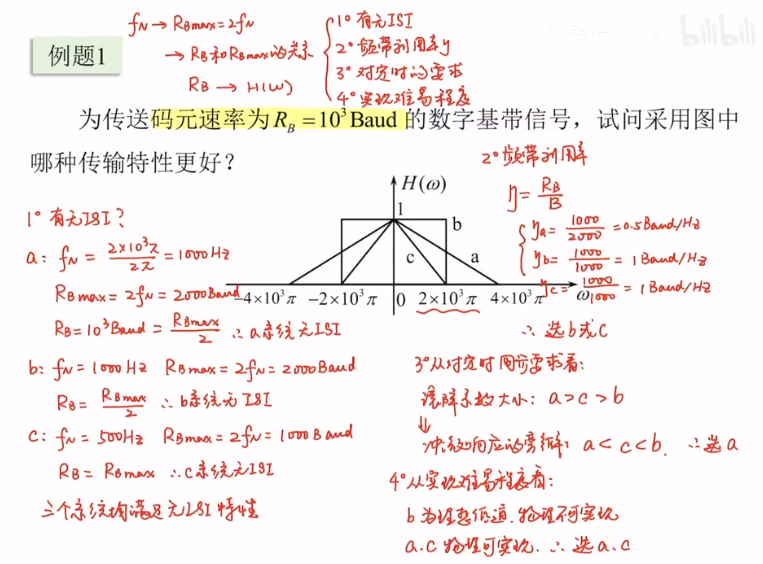 bilibili
例题1
f_N → R_Bmax=2f_N
→ R_B和R_Bmax的关系
R_B → H(ω)
1° 有无ISI
2° 频带利用率η
3° 对定时的要求
4° 实现难易程度
为传送码元速率为R_B=10³Baud的数字基带信号，试问采用图中
哪种传输特性更好？
H(ω)
1
b
c
a
-4×10³π
-2×10³π
0
2×10³π
4×10³π
ω
1° 有无ISI？
a: f_N = 2×10³π/2π = 1000Hz
R_Bmax = 2f_N = 2000Baud
R_B = 10³Baud = R_Bmax/2 ∴ a系统无ISI
b: f_N = 1000Hz R_Bmax = 2f_N = 2000Baud
R_B = R_Bmax/2 ∴ b系统无ISI
c: f_N = 500Hz R_Bmax = 2f_N = 1000Baud
R_B = R_Bmax ∴ c系统无ISI
三个系统均满足无ISI特性
2° 频带利用率
η = R_B/B
η_a = 1000/2000 = 0.5Baud/Hz
η_b = 1000/1000 = 1Baud/Hz
η_c = 1000/1000 = 1Baud/Hz
∴ 选b或c
3° 从对定时
要求看:
滚降系数大小: a>c>b
↓
冲激响应的
: a<c<b. ∴ 选a
4° 从实现难易程度看:
b为理想低通. 物理不可实现
a.c物理可实现. ∴ 选a.c